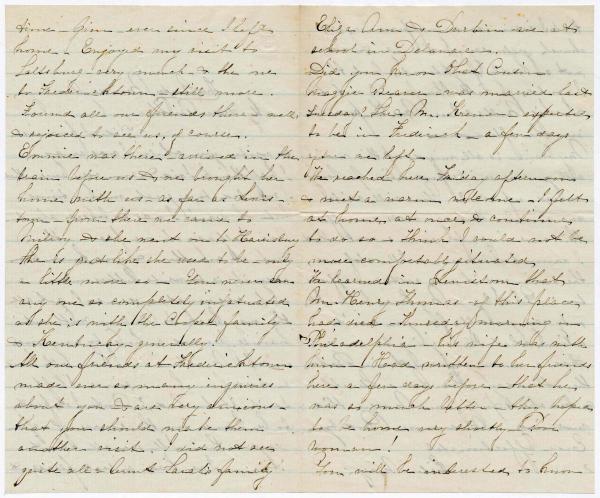 time - given - ever since I left
home - Enjoyed my visit to
Saltsburg very much & the one
to Fredericktown still more.
Found all our friends there well,
& rejoiced to see us, of course.
Emmie was there - arrived in the
train before us & we brought her
home with us as far as
town - from there we came to
& she went on to Harrisburg
She is just like she used to be - only
a little more so - You never saw
any one so completely infatuated
as she is with the family
& Kentucky generally.
All our friends at Fredericktown
made ever so many inquiries
about you & are very anxious
that you should make them
another visit. I did not see
quite all Aunt Sarah's family
Eliza Ann & Durbin are at
school in Delaware.
Did you know that Cousin
Maggie Pearre was married last
Tuesday? She & Mr. expected
to be in Frederick a few days
after we left.
We reached here Friday afternoon
& met a warm welcome - I felt
at home at once & continue
to do so - Think I could not be
more comfortably situated
We learned in that
Mr. Henry Thomas of this place
had died Thursday morning in
Philadelphia - his wife was with
him - Had written to her friends
here a few days before - that he
was so much better - they hoped
to be home very shortly - Poor
woman!
You will be interested to know